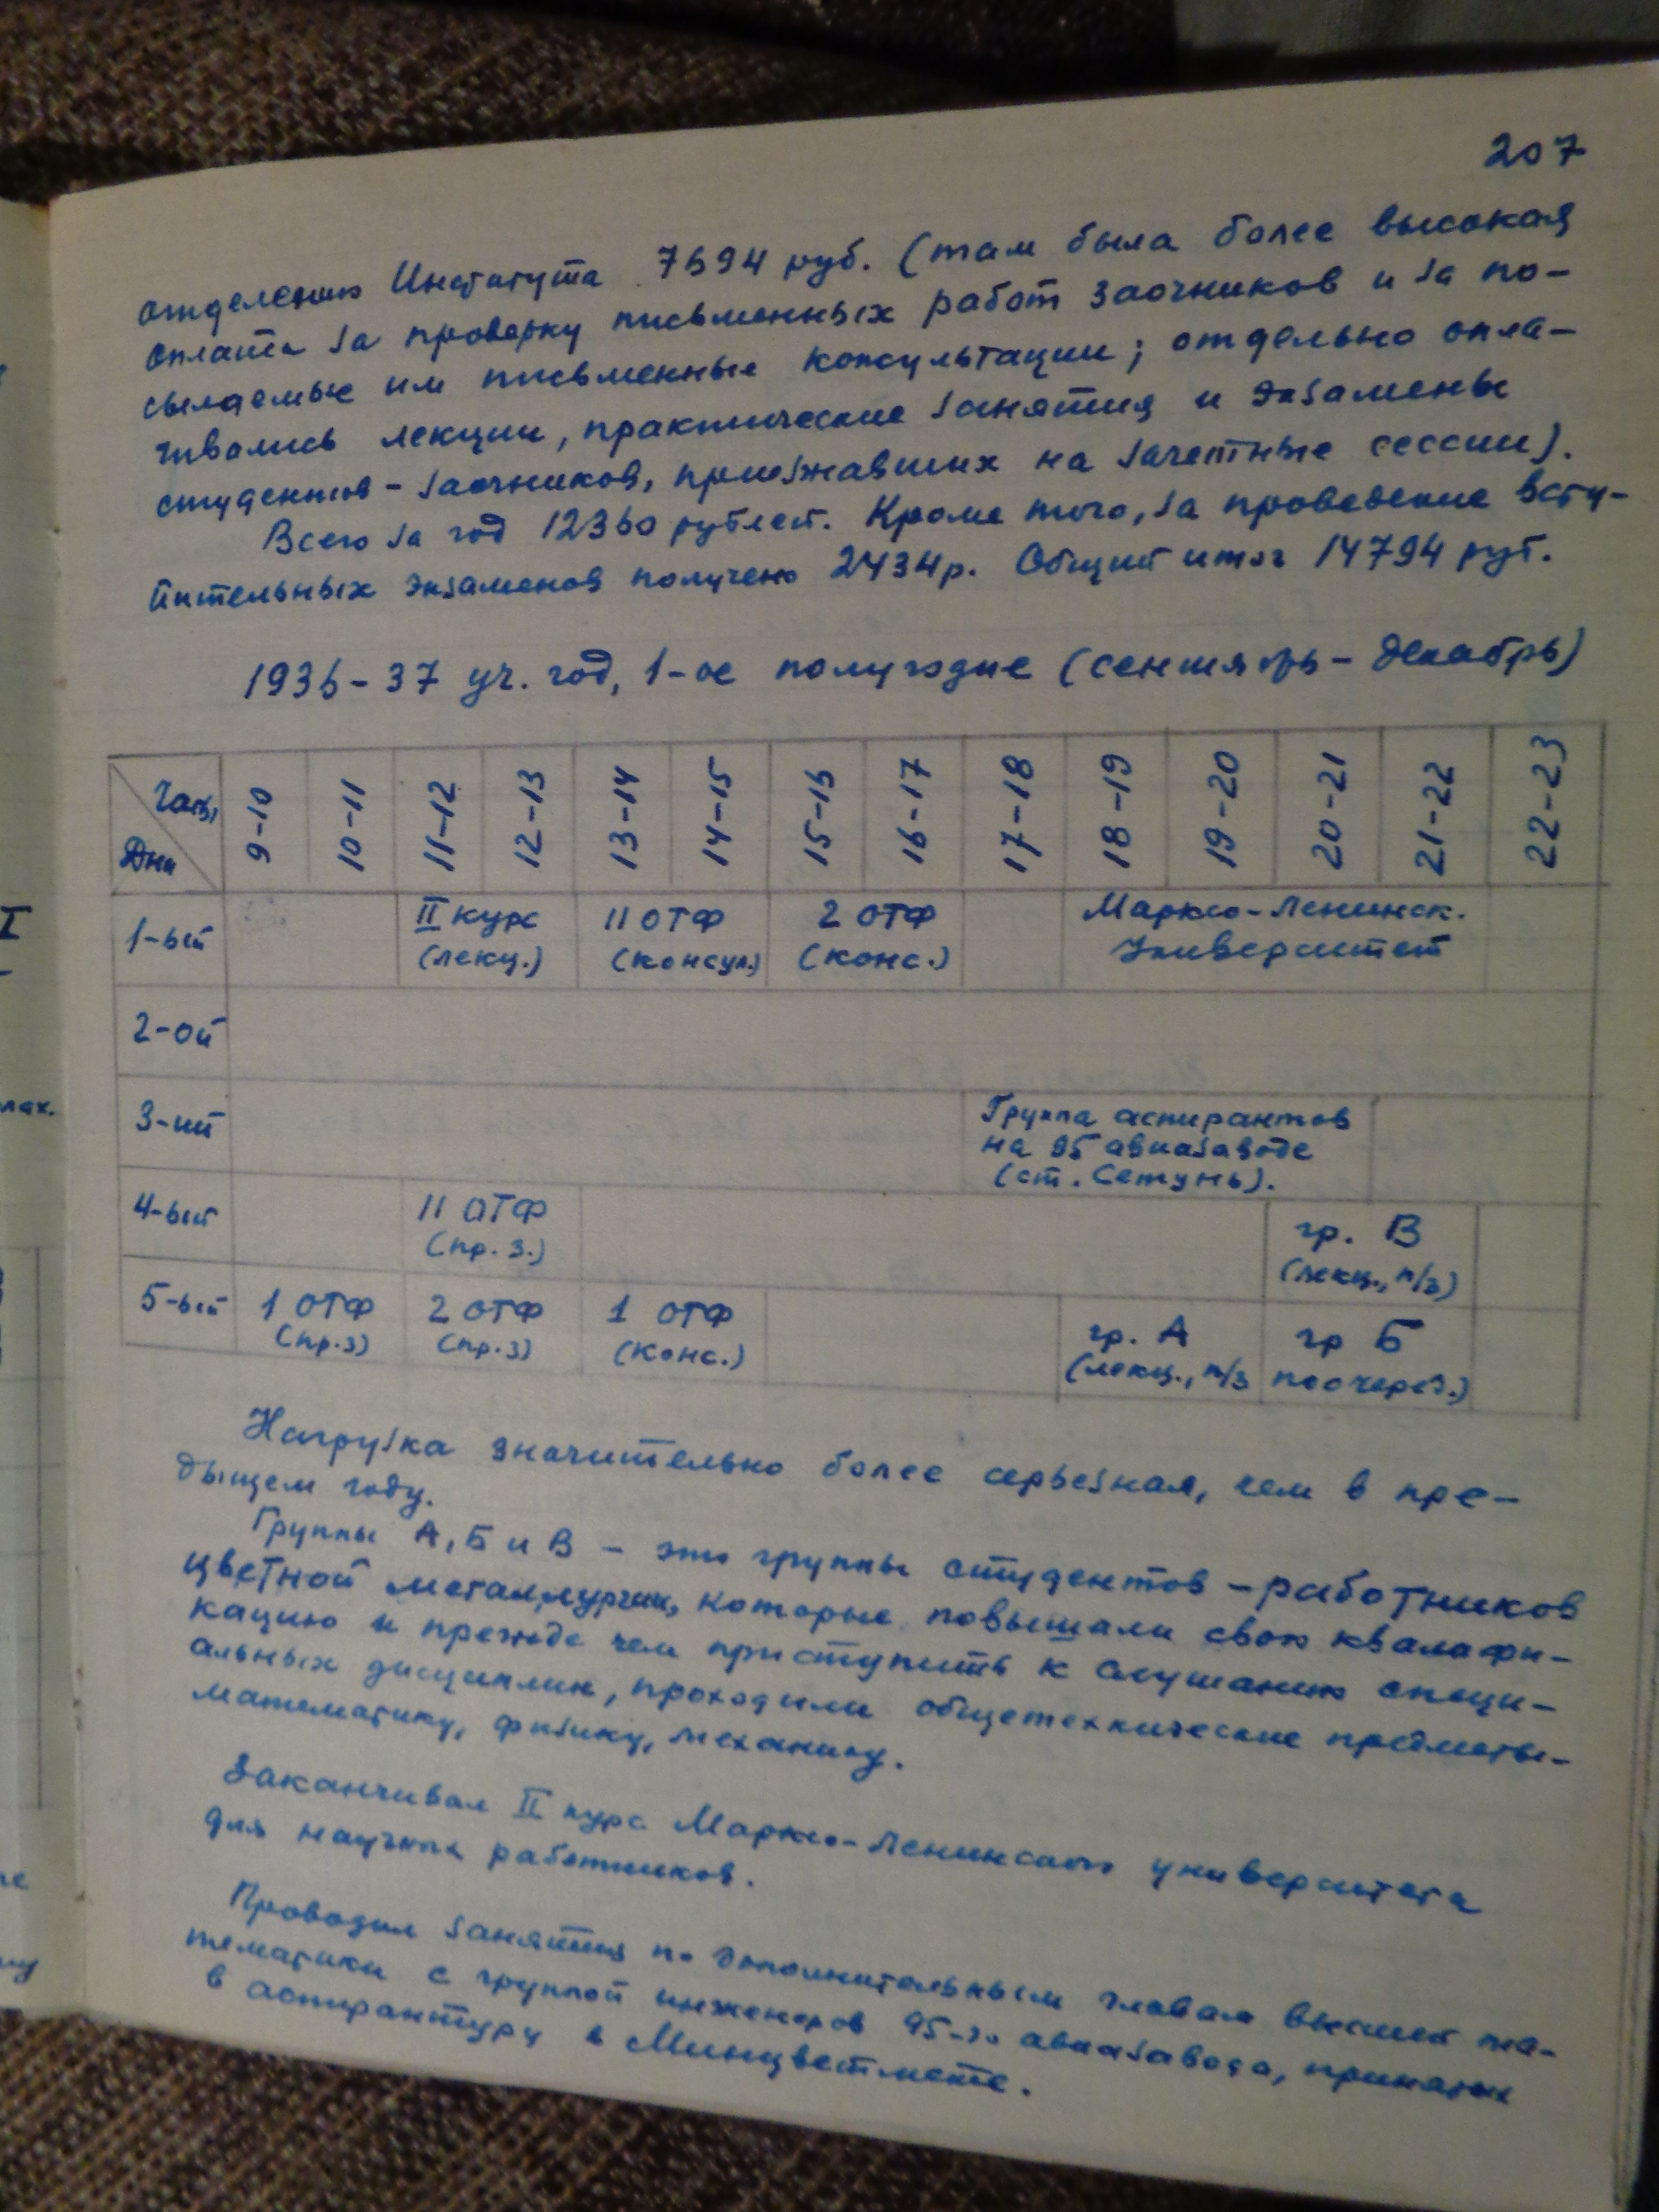 207
отделению Института 7694 руб. (там была более высокая
оплата за проверку письменных работ заочников и за по-
сылаемые им письменные консультации; отдельно опла-
чивались лекции, практические занятия и экзамены
студентов-заочников, приезжавших на зачетные сессии).
Всего за год 12360 рублей. Кроме того, за проведение всту-
пительных экзаменов получено 2434р. Общий итог 14794 руб.
1936-37 уч. год, 1-ое полугодие (сентябрь-декабрь)
Часы Дни 9-10 10-11 11-12 12-13 13-14 14-15 15-16 16-17 17-18 18-19 19-20 20-21 21-22 22-23
1-ый II курс (лекц.) 11 ОТФ (консул.) 2 ОТФ (конс.) Марксо-Ленинск. Университет
2-ой
3-ий Группа аспирантов на 95 авиазаводе (ст. Сетунь).
4-ый 11 ОТФ (пр. з.) гр. В (лекц., п/з)
5-ый 1 ОТФ (пр.з) 2 ОТФ (пр.з) 1 ОТФ (конс.) гр. А (лекц., п/з гр Б поочеред.)
Нагрузка значительно более серьезная, чем в пре-
дыщем году.
Группы А, Б и В - это группы студентов - работников
цветной металлургии, которые повышали свою квалифи-
кацию и прежде чем приступить к слушанию специ-
альных дисциплин, проходили общетехнические предметы-
математику, физику, механику.
Заканчивал II курс Марксо-Ленинского университета
для научных работников.
Проводил занятия по дополнительным главам высшей ма-
тематики с группой инженеров 95-го авиазавода, принятых
в аспирантуру в Минцветмете.